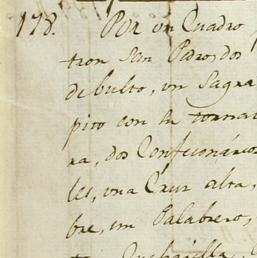 178. Por un Cuadro
tron San Pedro, dos
de bulto, un Sagra
pito con su tornav
ra, dos Confesionario
les, una Cruz alta,
bre, un Palabrero,